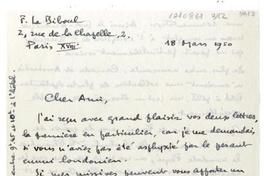 P. Le Biboul 1210861 352
2, rue de la Chapelle, 2.
Paris XVIII 18 Mars 1950
Cher Ami,
J'ai reçu avec grand plaisir vos deux lettres,
la première en particulier, car je me demandais
si vous n'aviez pas été asphyxié par le pesant
ennui londonien.
Si mes missives peuvent vous apporter un